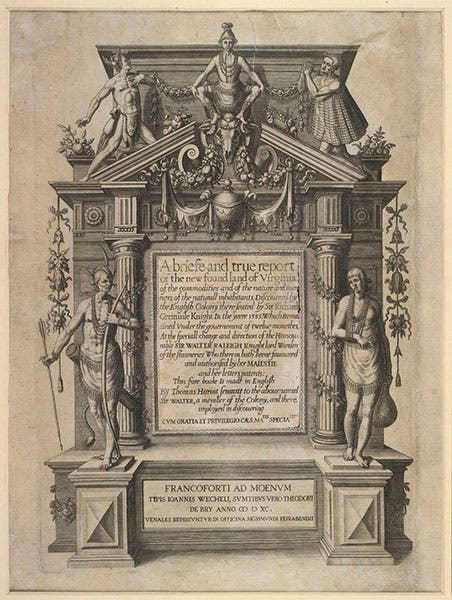 A briefe and true report
of the new found land of Virginia
of the commodities and of the nature and man
ners of the naturall inhabitants. Discouered by
the English Colony there seated by Sir Richard
Greinuile Knight In the yeere 1585. Which Remai
ned Vnder the gouernement of twelue monethes,
At the speciall charge and direction of the Honou-
rable SIR WALTER RALEIGH Knight lord Warden
of the stanneries Who therein hath beene fauoured
and authorised by her MAIESTIE
and her letters patents:
This fore booke Is made in English
By Thomas Hariot seruant to the abouenamed
Sir WALTER, a member of the Colony, and there
imployed in discouering
CVM GRATIA ET PRIVILEGIO CÆS. MA.TIS SPECIALI
FRANCOFORTI AD MOENVM
TYPIS IOANNIS WECHELI, SVMTIBVS VERO THEODORI
DE BRY ANNO CIƆ IƆ XC.
VENALES REPERIVNTVR IN OFFICINA SIGISMVNDI FEIRABENDII